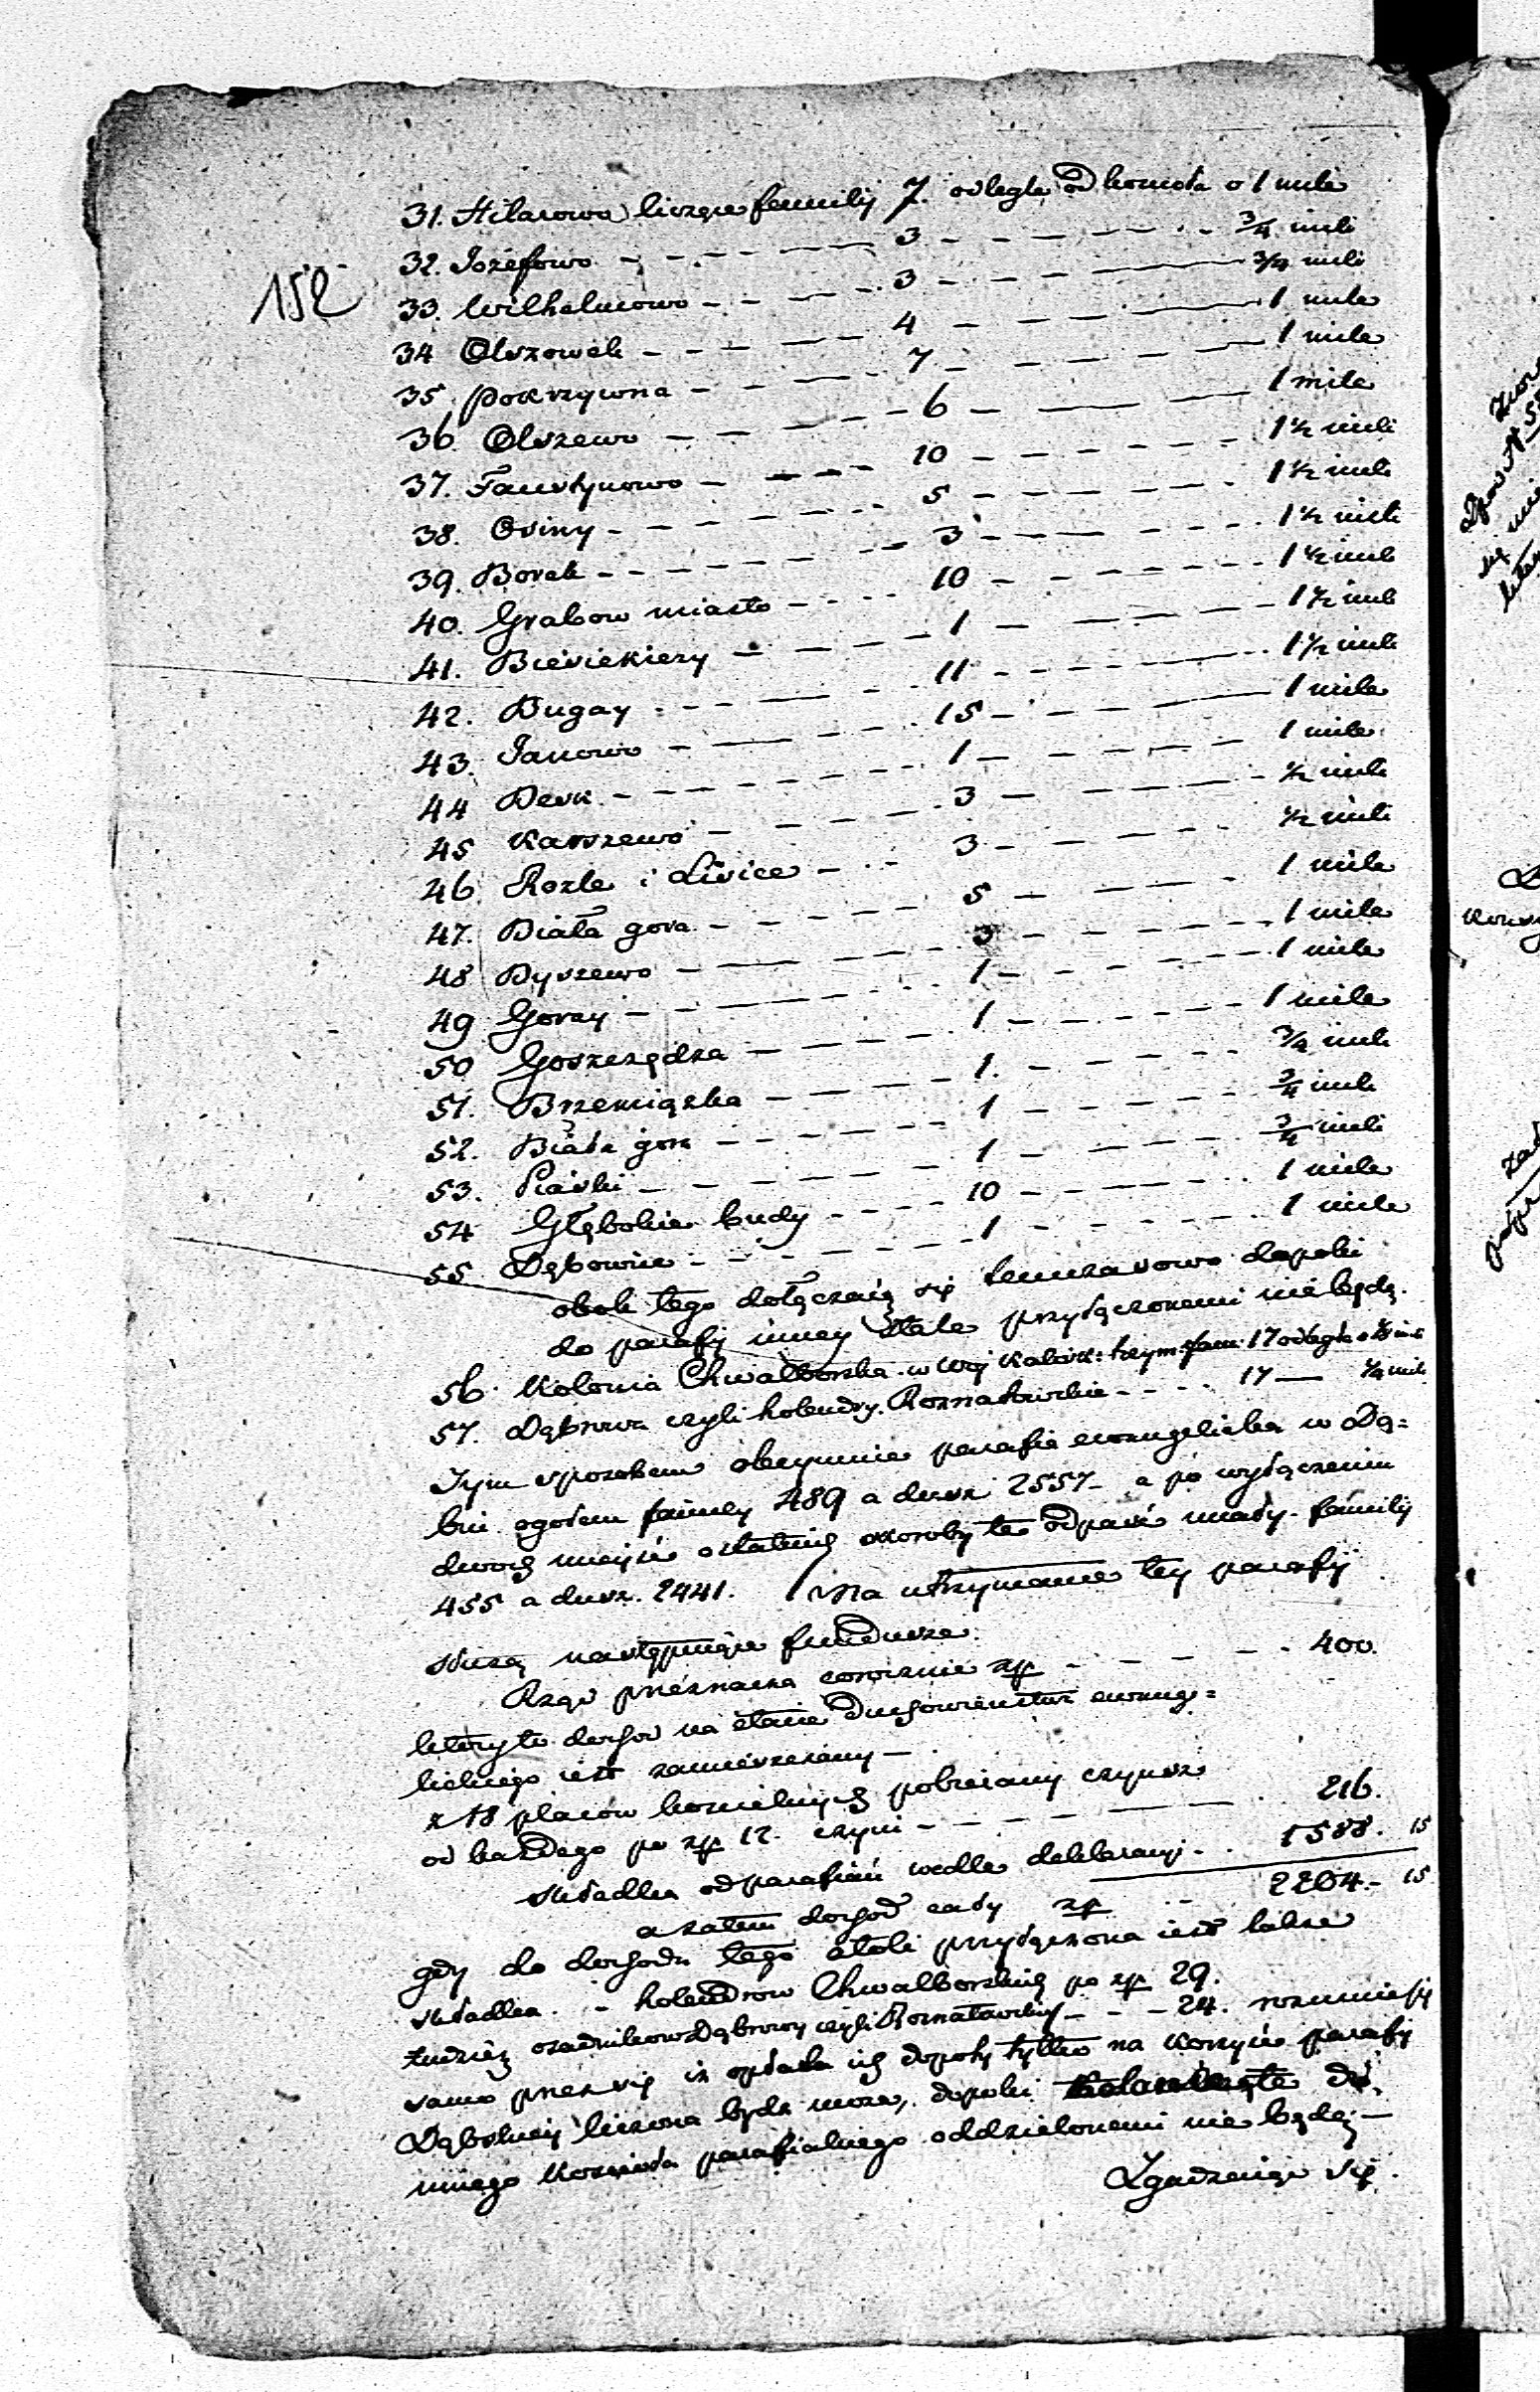 152
31. Hilarowo liczące familiy 7. odległe od kościoła o 1 mile
32. Józefowo - - - - 3 - - - - ¾ mili
33. Wilhelmowo - - - - 3 - - - - ¾ mili
34 Olszowek - - - - 4 - - - - 1 mile
35. Pokrzywna - - - - 7 - - - - 1 mile
36. Olszewo - - - - 6 - - - - 1 mile
37. Faustynowo - - - - 10 - - - - 1½ mili
38. Osiny - - - - 5 - - - - 1½ mili
39. Borek - - - - 3 - - - - 1½ mili
40. Grabow miasto - - - - 10 - - - - 1½ mili
41. Biesiekiery - - - - 1 - - - - 1½ mili
42. Bugay - - - - 11 - - - - 1½ mili
43. Janowo - - - - 15 - - - - 1 mile
44 Besk - - - - 1 - - - - 1 mile
45 Karszewo - - - - 3 - - - - ½ mili
46. Rozle i Lisice - - - - 3 - - - - ½ mili
47. Biała gora - - - - 5 - - - - 1 mile
48 Byszewo - - - - 3 - - - - 1 mile
49 Goray - - - - 1 - - - - 1 mile
50 Goszczędza - - - - 1 - - - - 1 mile
51. - - - - 1. - - - - ¾ mili
52. Biała gora - - - - 1 - - - - ¾ mili
53. Piaski - - - - 1 - - - - ¾ mili
54 Głębokie budy - - - - 10 - - - - 1 mile
55 Dąbownica - - - - 1 - - - - 1 mile
obok tego dołączaią się tymczasowo dopoki
do parafij inney stale przyłączonemi nie będą.
56. Kolonia Chwalborska w Woj Kalisk: trzym: fam: 17 odległe o
57. Dąbrowa czyli holendry Roznatowskie - - - - 17 — ¼ mili
Tym sposobem obeymuie parafia ewangelicka w Dą=
biu ogołem famey 489 a dusz 2557 - a po wyłączeniu
dwoch mieysc ostatnich ktoreby te odpaść miały - familiy
455 a dusz. 2441. Na utrzymanie tey parafij
służą następuiące fundusze:
Rząd przeznacza corocznie zp - - - - 400.
ktoryto dochod na etacie Duchowieństwa ewange=
lickiego iest zamieszczony —
z 18 placow koscielnych pobierany czynsz
od każdego po zp 12. czyni - - - - 216.
składka od parafian wedle deklaracyi - - 1588. 15
a zatem dochod cały zp - - 2204 - 15
gdy do dochodu tego atoli przyłączona iest także
składka - holendrow Chwalborskich po zp 29.
tudzież osadnikow Dąbrowy czyli Roznatowskich - - - 24. rozumie się
samo przez się iż opłata ich dopoty tylko na korzyść parafij
Dąbskiey liczona być może, dopoki do
innego kościoła parafialnego oddzielonemi nie będą —
Zgadzaiąc się.